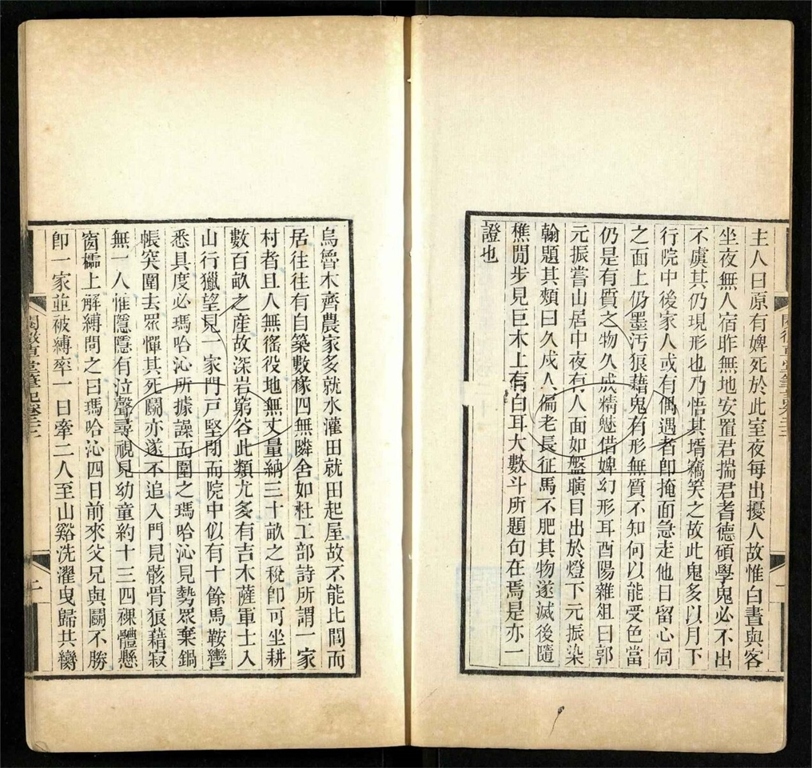 主人曰原有婢死於此室夜每出擾人故惟白晝與客
坐夜無人宿昨無地安置君揣君耆德碩學鬼必不出
不虞其仍現形也乃悟其壻竊笑之故此鬼多以月下
行院中後家人或有偶遇者卽掩面急走他日留心伺
之面上仍墨汚狼藉鬼有形無質不知何以能受色當
仍是有質之物久成精魅借婢幻形耳酉陽雜俎曰郭
元振嘗山居中夜有人面如盤瞚目出於燈下元振染
翰題其頰曰久戍人偏老長征馬不肥其物遂滅後隨
樵閒步見巨木上有白耳大數斗所題句在焉是亦一
證也
烏魯木齊農家多就水灌田就田起屋故不能比閭而
居往往有自築數椽四無隣舍如杜工部詩所謂一家
村者且人無徭役地無丈量納三十畝之稅卽可坐耕
數百畝之産故深岩窮谷此類尤多有吉木薩軍士入
山行獵望見一家門戸堅閉而院中似有十餘馬鞍轡
悉具度必瑪哈沁所據譟而圍之瑪哈沁見勢眾棄鍋
帳突圍去眾憚其死鬬亦遂不追入門見骸骨狼藉寂
無一人惟隱隱有泣聲尋視見幼童約十三四裸體懸
窗櫺上解縛問之曰瑪哈沁四日前來父兄與鬬不勝
卽一家並被縛率一日牽二人至山谿洗濯曳歸共臠